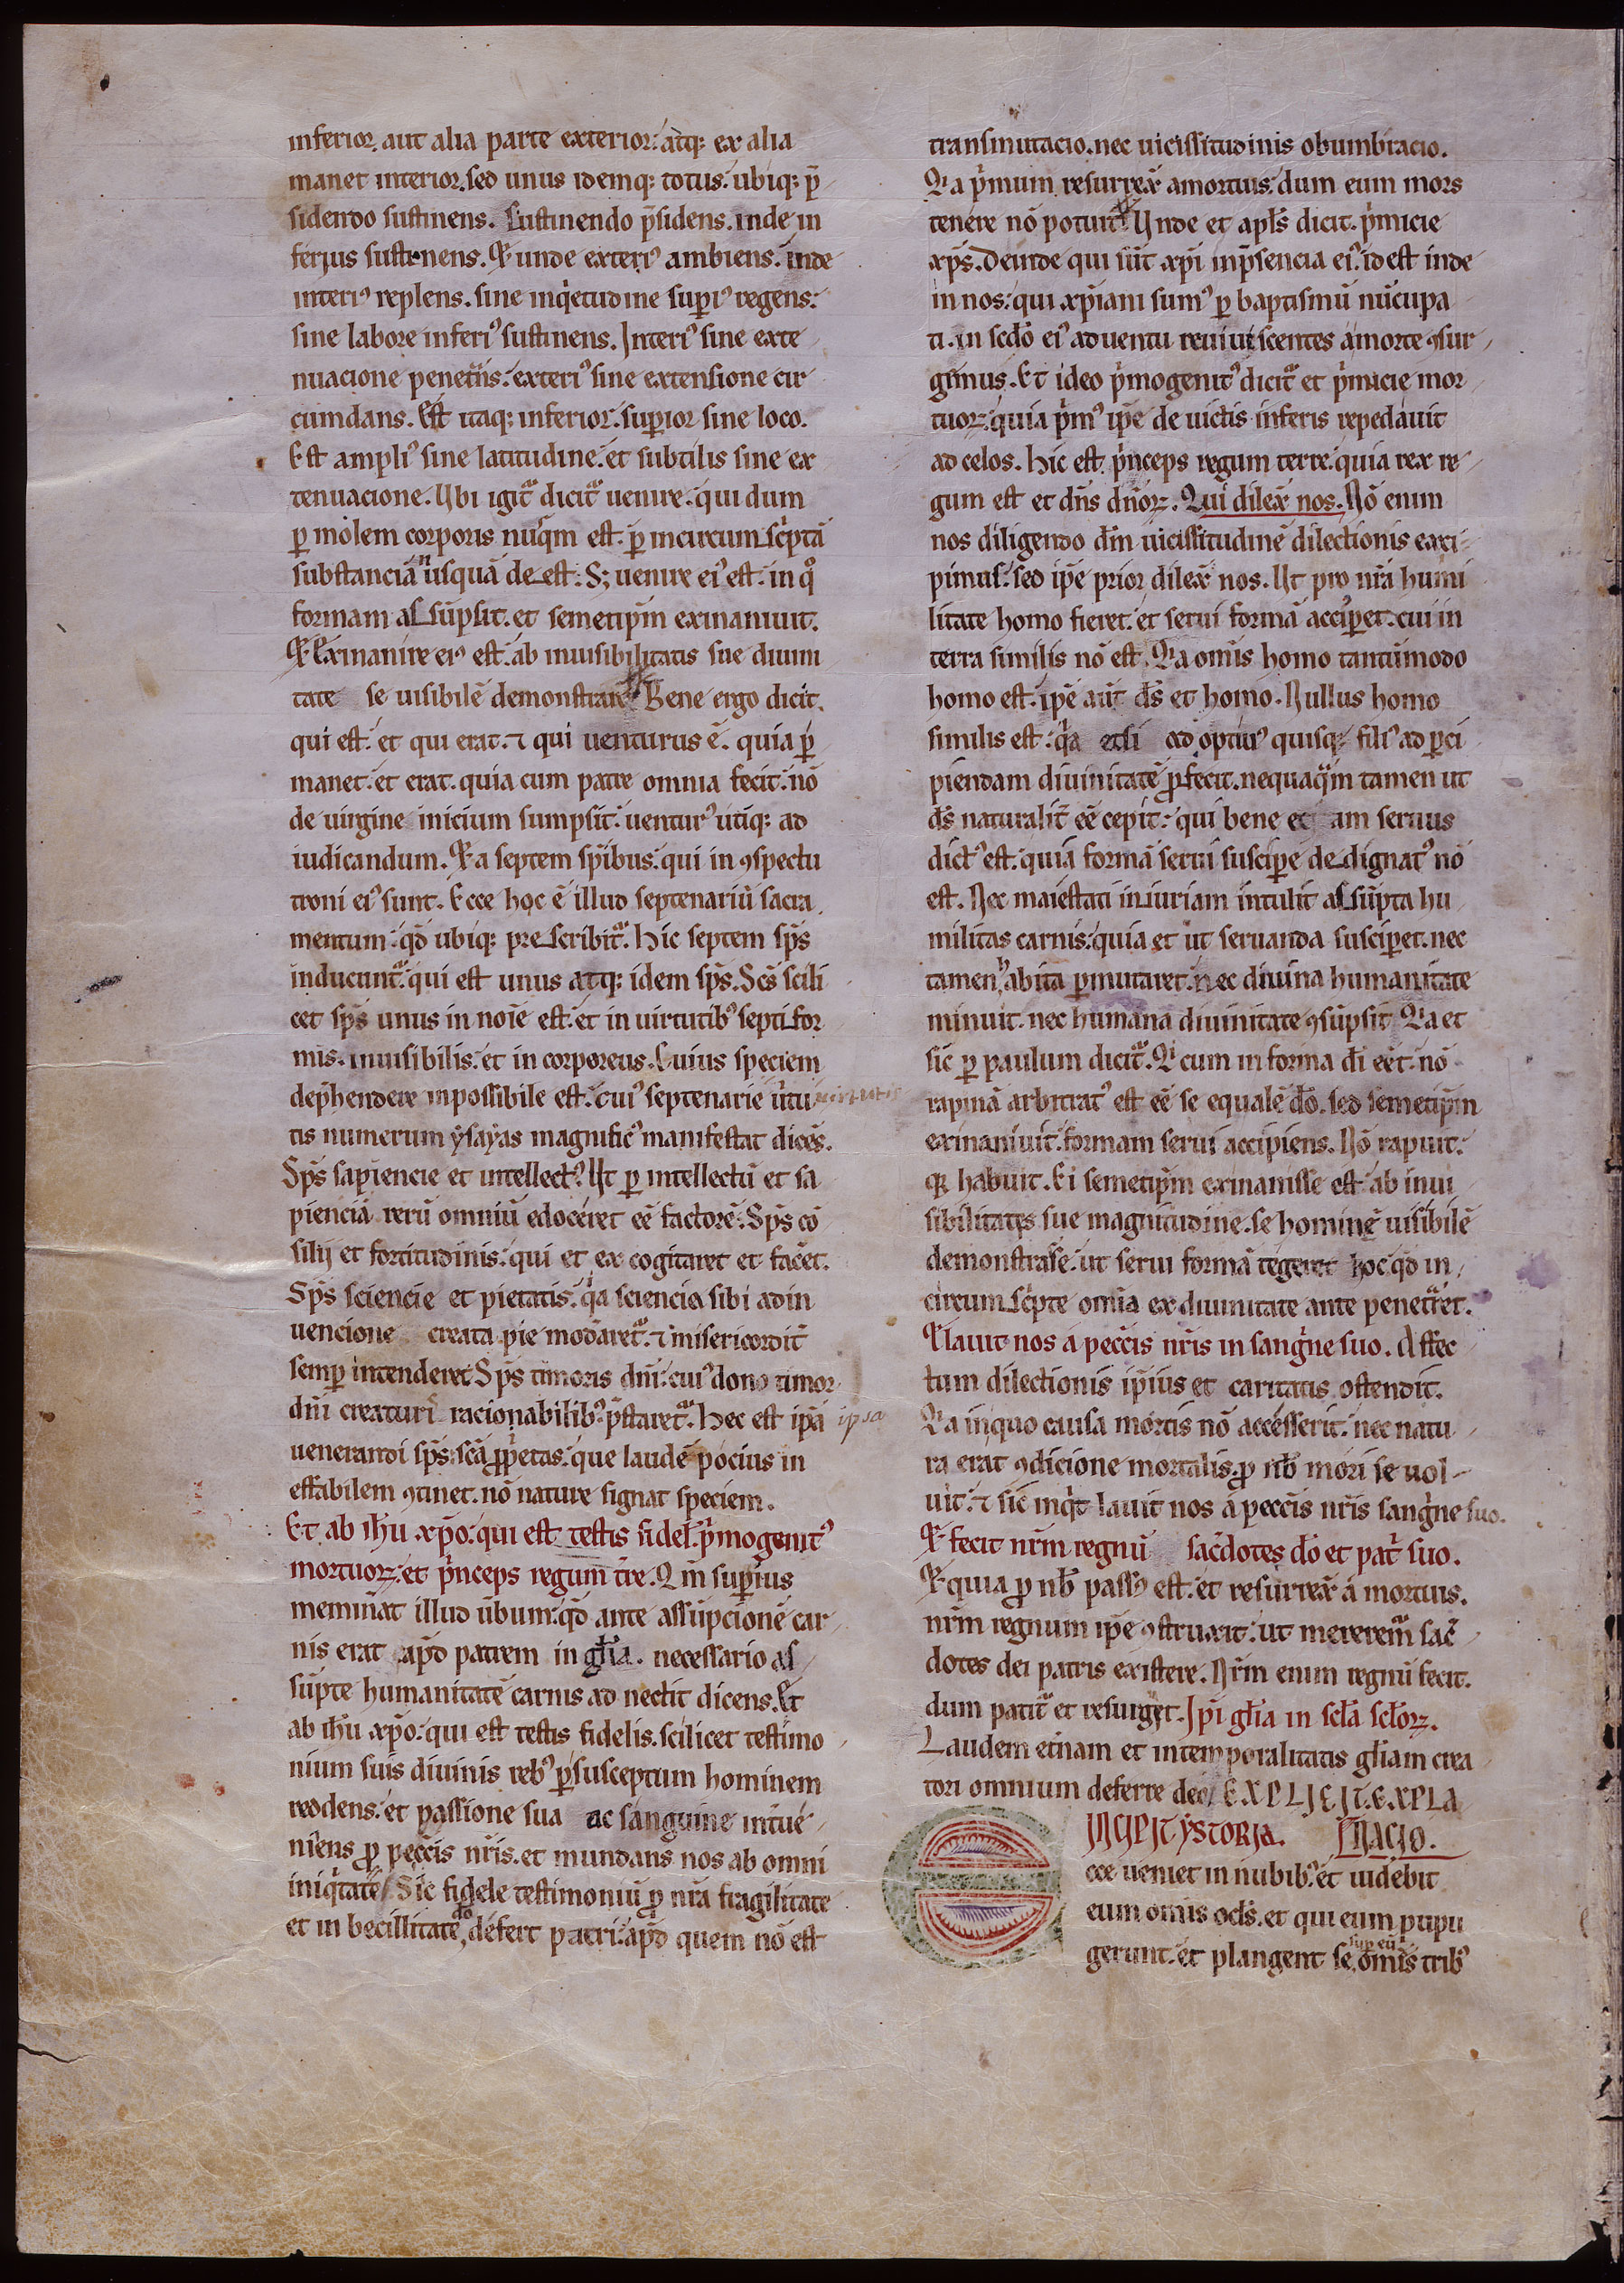 inferior. aut alia parte exterior: atq; ex alia
manet interior. sed unus idemq; totus. ubiq; p̄
sidendo sustinens. sustinendo p̄sidens. inde in
ferius sustinens. Et unde exteriꝰ ambiens. inde
interiꝰ replens. sine inq̇etudine supiꝰ regens:
sine labore inferiꝰ sustinens. Interiꝰ sine exte
nuacione penetrās. exteriꝰ sine extensione cir
cumdans. Est itaq; inferior. suꝑior sine loco.
Est ampliꝰ sine latitudine. et subtilis sine ex
tenuacione. Ubi igit̃ dicit̃ uenire. qui dum
ꝑ molem corporis nuq̃m est. ꝑ incircumscptā
substanciā nusquā deest. S; uenire eiꝰ est. in qͦ
formam assūpsit. et semetip̄m exinaniuit.
Et Exinanire eiꝰ est. ab inuisibilitatis sue diuini
tate se uisibilē demonstrare. Bene ergo dicit.
qui est. et qui erat. ⁊ qui uenturus ē. quia ꝑ
manet. et erat. quia cum patre omnia fecit. nō
de uirgine inicium sumpsit. uenturꝰ utiq; ad
iudicandum. Et a septem sp̄ibus. qui in ꝯspectu
troni eiꝰ sunt. Ecce hoc ē illud septenariū sacra
mentum. qd̄ ubiq; prescribit̃. Hic septem sp̄s
inducunt̃. qui est unus atq; idem sp̄s. Scs̄ scili
cet sp̄s unus in noīe est. et in uirtutibꝰ septifor
mis. inuisibilis. et incorporeus. Cuius speciem
dep̄hendere inpossibile est. cuiꝰ septenarie ūtu
tis numerum ẏsaẏas magnificꝰ manifestat dicēs.
Sp̄s sapiencie et intellectꝰ. Ut ꝑ intellectū et sa
pienciā rerū omniū edoceret eē factorē. Sp̄s cō
silij et fortitudinis. qui et excogitaret et facēt.
Sp̄s sciencie et pietatis. q̇a sciencia sibi adin
uencione creata pie modāret̃. ⁊ misericordit̃
semꝑ intenderet Sp̄s timoris dn̄i. cuiꝰ dono timor
dn̄i creature racionabilibꝰ p̄staret̃. Hec est ip̄a ipsa
uenerandi sp̄s. scā ꝓpetas. que laudē pocius in
effabilem ꝯtinet. nō nature signat speciem.
Et ab ih̄u xp̄o. qui est testis fidel̄. ṗmogenitꝰ
mortuoꝝ. et ṗnceps regum tr̄e. Qm̄ supius
meminat illud ūbum. qd̄ ante assūpcionē car
nis erat apd̄ patrem in gl̄ia. necessario as
sūpte humanitatē carnis adnectit dicens. Et
ab ih̄u xp̄o. qui est testis fidelis. scilicet testimo
nium suis diuinis rebꝰ ꝑ susceptum hominem
reddens. et passione sua ac sanguine intue
niens ꝓ peccīs nr̄is. et mundans nos ab omni
iniq̇tate. Sic fidele testimoniū ꝓ nr̄a fragilitate
et inbecillitate defert patri. apd̄ quem nō est
transmutacio. nec uicissitudinis obumbracio.
Qa ṗmum resurrex̄ amortuis. dum eum mors
tenere nō potuit. Unde et apl̄s dicit. ṗmicie
xp̄s. Deinde qui sūt xp̄i inp̄sencia eiꝰ. id est inde
in nos. qui xp̄iani sumꝰ ꝑ baptismū nūcupa
ti. in sc̄do eiꝰ aduentu reuiuiscentes a morte ꝯsur
gimus. Et ideo ṗmogenitꝰ dicit̃ et ṗmicie mor
tuoꝝ. quia ṗmꝰ ip̄e de uictis inferis repedauit
ad celos. Hic est ṗnceps regum terre. quia rex re
gum est et dn̄s dn̄oꝝ. Qui dilex̄ nos. Nō enim
nos diligendo dīn uicissitudinē dilectionis exci
pimus. sed ip̄e prior dilex̄ nos. Ut pro nr̄a humi
litate homo fieret. et serui formā acciꝑet. cui in
terra similis nō est. Qa omīs homo tantūmodo
homo est. ip̄e aūt ds̄ et homo. Nullus homo
similis est. q̇a etsi adoptiuꝰ quisq; filiꝰ adꝑci
piendam diuinitatē ꝓfecit. nequaq̃m tamen ut
ds̄ naturalit̃ eē cepit. qui bene et iam seruus
dictꝰ est. quia formā serui susciꝑe dedignatꝰ nō
est. Nec maiestati iniuriam intulit assūpta hu
militas carnis. quia et ut seruanda susciꝑet. nec
tamen habita ꝑmutaret. nec diuina humanitate
minuit. nec humana diuinitate ꝯsūpsit Qa et
sic ꝑ paulum dicit̃. Qi cum in forma dī eēt. nō
rapinā arbitratꝰ est eē se equalē dō. sed semetip̄m
exinaniuit. formam serui accipiens. Nō rapuit.
qͥ habuit. Ei semetip̄m exinanisse est ab inui
sibilitatis sue magnitudine. se hominē uisibilē
demonstrasē. ut serui formā tegeret hoc qd̄ in
circumscpte omīa ex diuinitate ante penetrēt.
Et lauit nos a peccīs nr̄is in sanġne suo. Affec
tum dilectionis ip̄ius et caritatis ostendit.
Qa in quo causa mortis nō accesserit. nec natu
ra erat ꝯdicione mortalis. ꝓ nb̄ mori se uol
uit. ⁊ sic inq̇t lauit nos a peccīs nr̄is sanġne suo.
Et fecit nr̄m regnū sac̄dotes dō et patī suo.
Et quia ꝓ nb̄ passꝰ est. et resurrex̄ a mortuis.
nr̄m regnum ip̄e ꝯstruxit. ut mererem̃ sac̄
dotes dei patris existere. Nr̄m enim regnū fecit.
dum patit̃ et resurget. Ipī gl̄ia in scl̄a scl̄oꝝ.
Laudem et̄nam et intemporalitatis gl̄iam crea
tori omnium deferre deo. EXPLICIT. EXPLA
INCIPIT ẎSTORIA. NACIO.
Ecce ueniet in nubibꝰ. et uidebit
eum omīs ocl̄s. et qui eum pupu
gerunt. et plangent se sup eū omīs tribꝰ